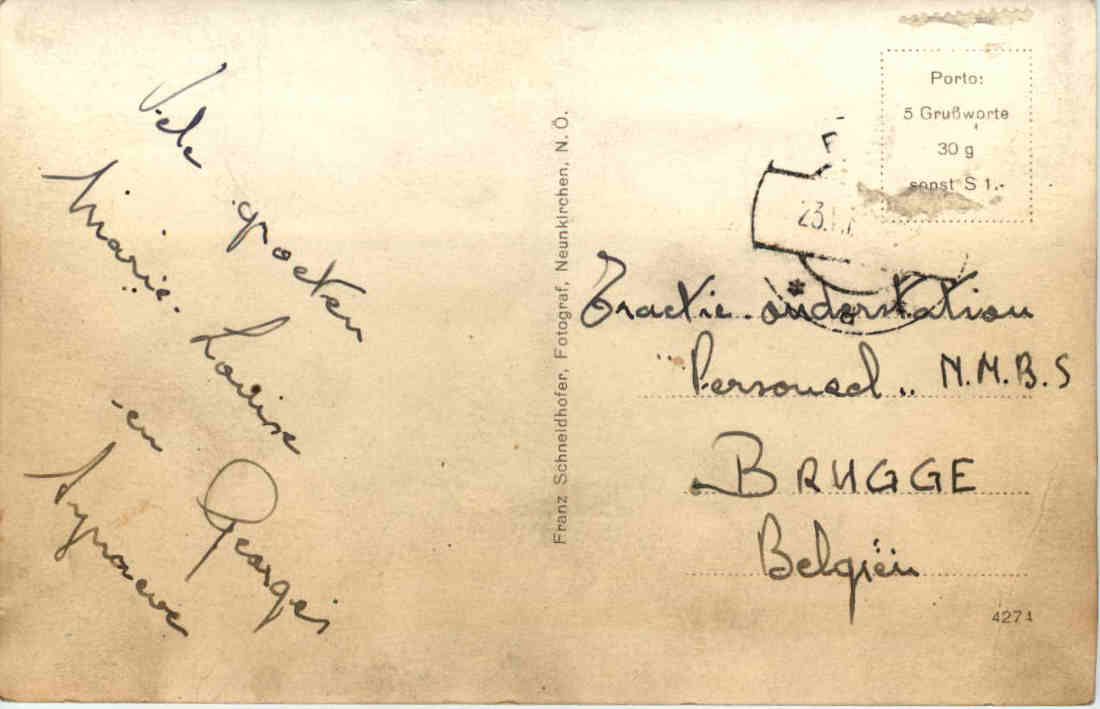 Vele
groeten
Marie-Louise
en Georges
Franz Schneidhofer, Fotograf, Neunkirchen, N. Ö.
Porto:
5 Grußworte
30 g
sonst S 1.-
23.
Tractie onderstation
"Personeel" N.M.B.S
BRUGGE
Belgiën
4274